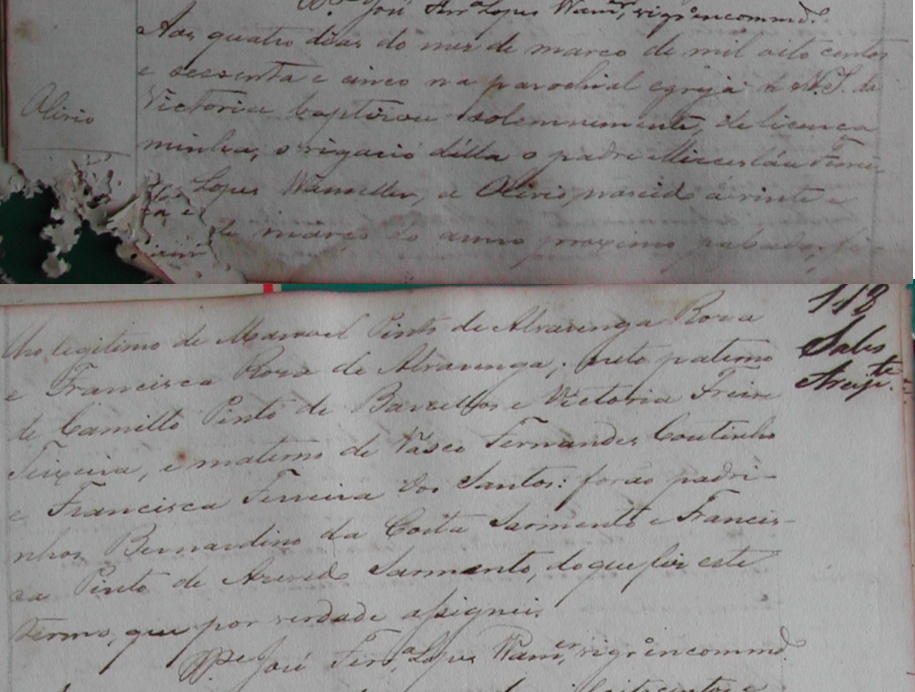 Pe José Ferra Lopes Wanr, vigro encommdo.
Aos quatro dias do mez de março de mil oito centos
e sessenta e cinco na parochial egreja de N. S. da
Victoria baptizou solemnemente, de licença
Olivio
minha, o vigario della o padre
Lopes Wanzeller, a Olivio, nascido a vinte e
de março do anno proximo passado, fi-
lho legitimo de Manoel Pinto de Alvarenga Roza
e Francisca Roza de Alvarenga; neto paterno
de Camillo Pinto de Barcellos e Victoria Freire
Teixeira, e materno de Vasco Fernandes Coutinho
e Francisca Ferreira dos Santos: forão padri-
nhos Bernardino da Costa Sarmento e Francis-
ca Pinto de Azevedo Sarmento, do que fiz este
termo, que por verdade assignei.
Pe José Ferra Lopes Wanr, vigro encommdo.
118
Sales